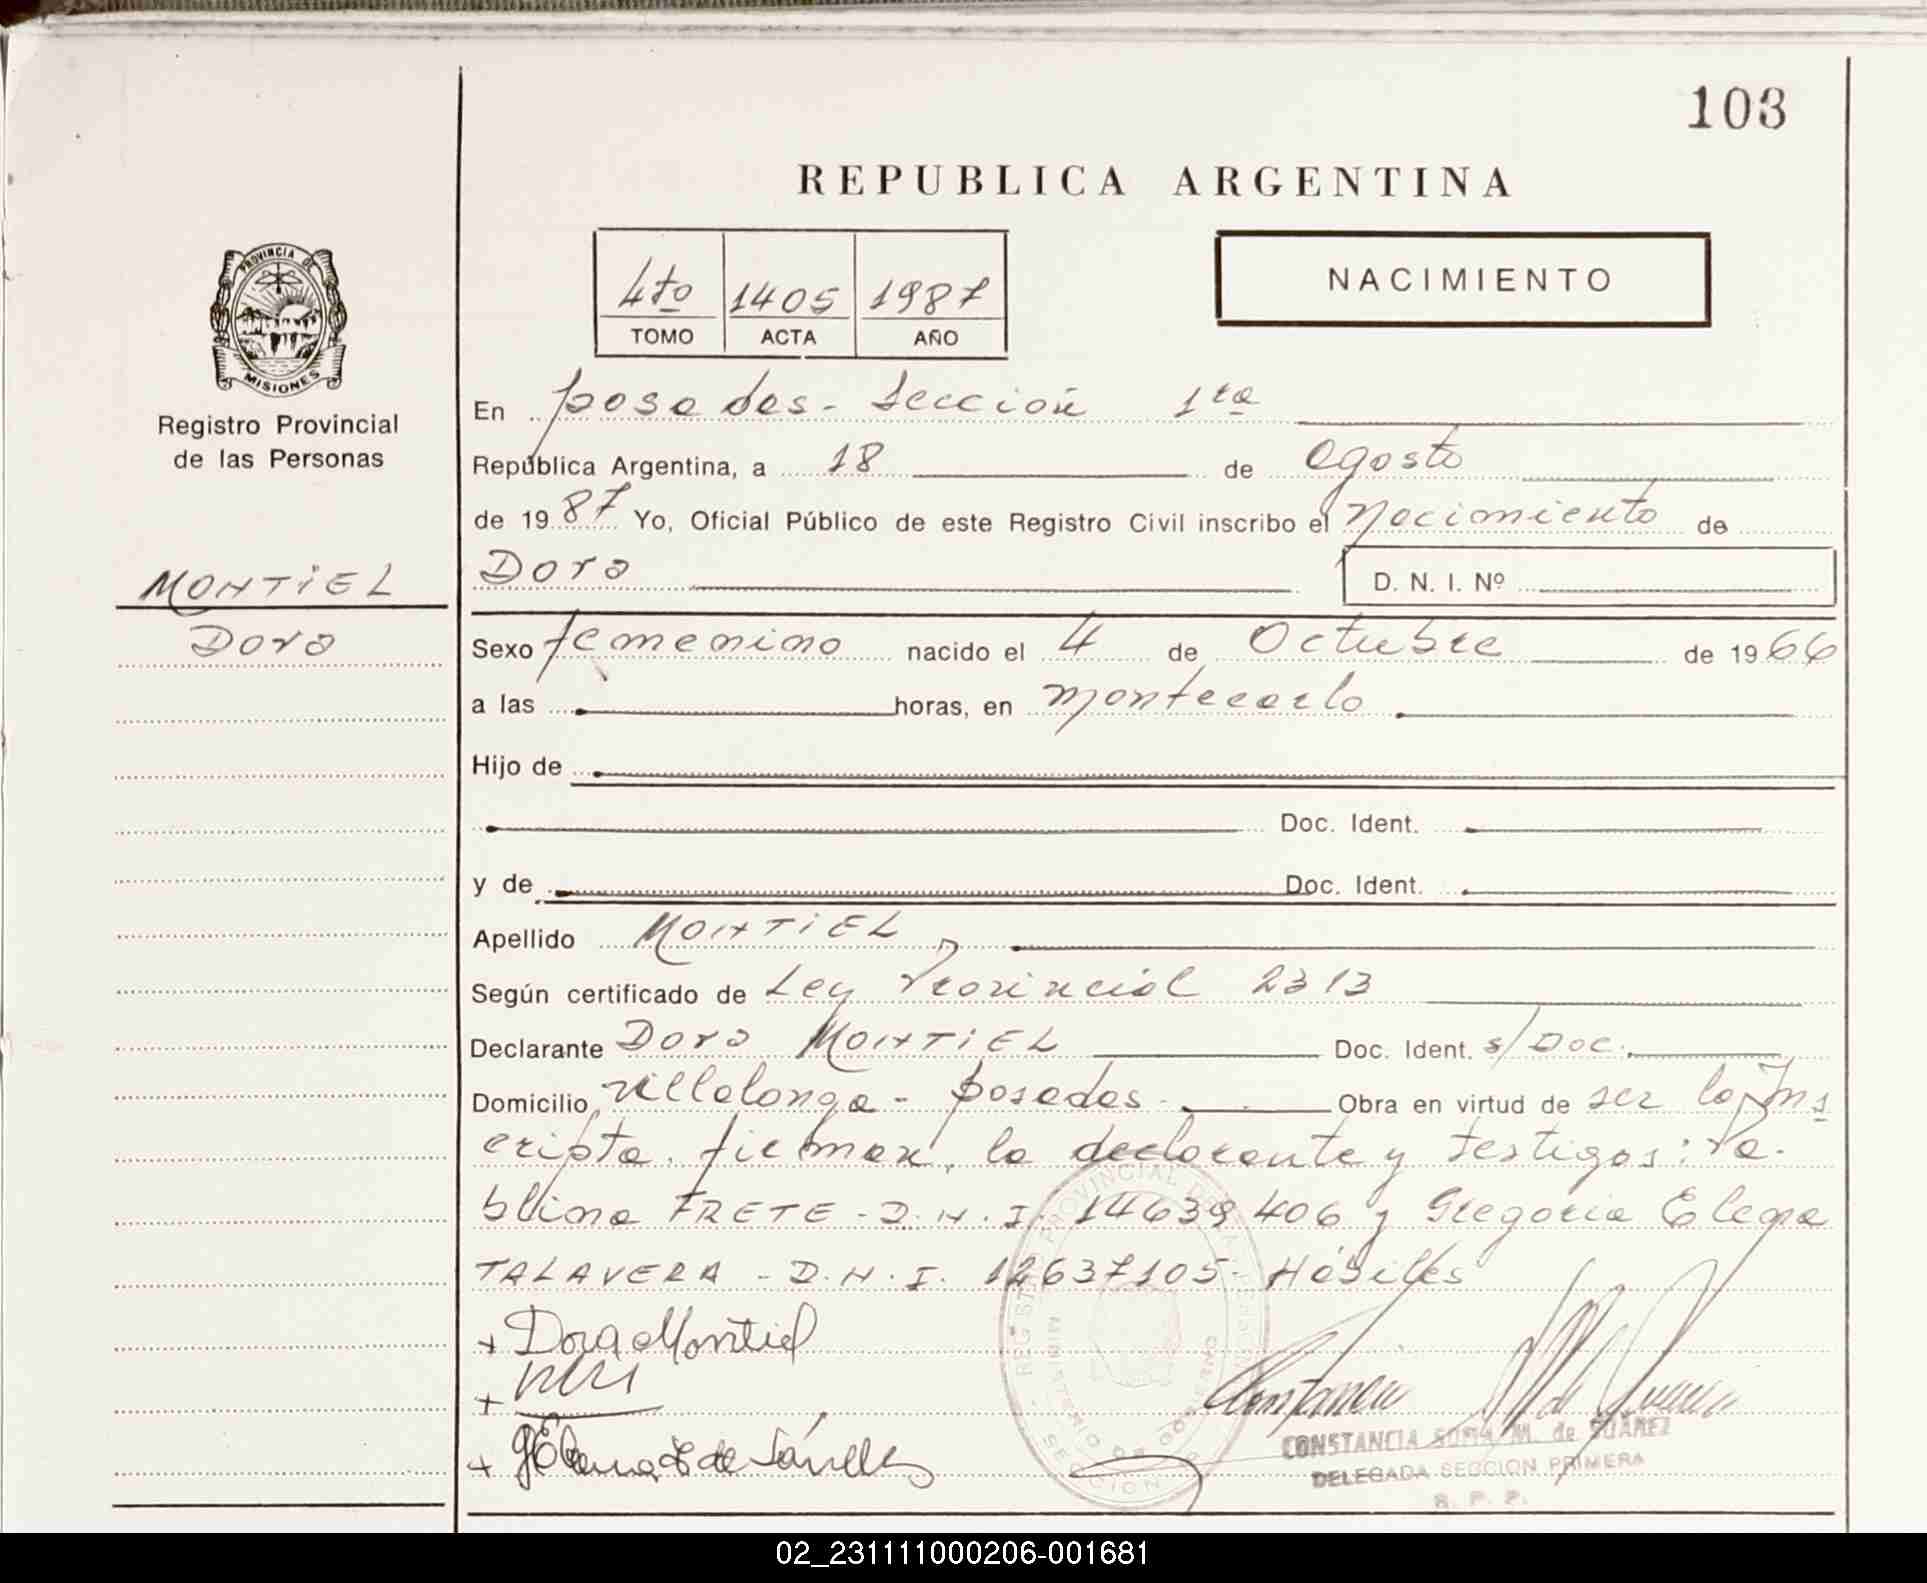 103
REPUBLICA ARGENTINA
4to 1405 1987
TOMO ACTA AÑO
NACIMIENTO
PROVINCIA DE
MISIONES
Registro Provincial
de las Personas
MONTIEL
Dora
En posadas - Sección 1ra
República Argentina, a 18 de agosto
de 1987 Yo, Oficial Público de este Registro Civil inscribo el Nacimiento de
Dora D. N. I. Nº
Sexo femenino nacido el 4 de Octubre de 1966
a las horas, en montecarlo
Hijo de
Doc. Ident.
y de Doc. Ident.
Apellido MONTIEL
Según certificado de Ley Provincial 2313
Declarante Dora MONTIEL Doc. Ident. s/Doc.
Domicilio Villalonga - posadas - Obra en virtud de ser la Ins
cripta. firman, la declarante y testigos: Pa-
blina FRETE - D.N.I. 14639406 y Gregoria Elena
TALAVERA - D.N.I. 12637105 - Hábiles
+ Dora Montiel
+
+
REGISTRO PROVINCIAL DE LAS PERSONAS
MINISTERIO DE GOBIERNO
SECCION
CONSTANCIA SOFIA M. de SUAREZ
DELEGADA SECCION PRIMERA
R. P. P.
02_231111000206-001681